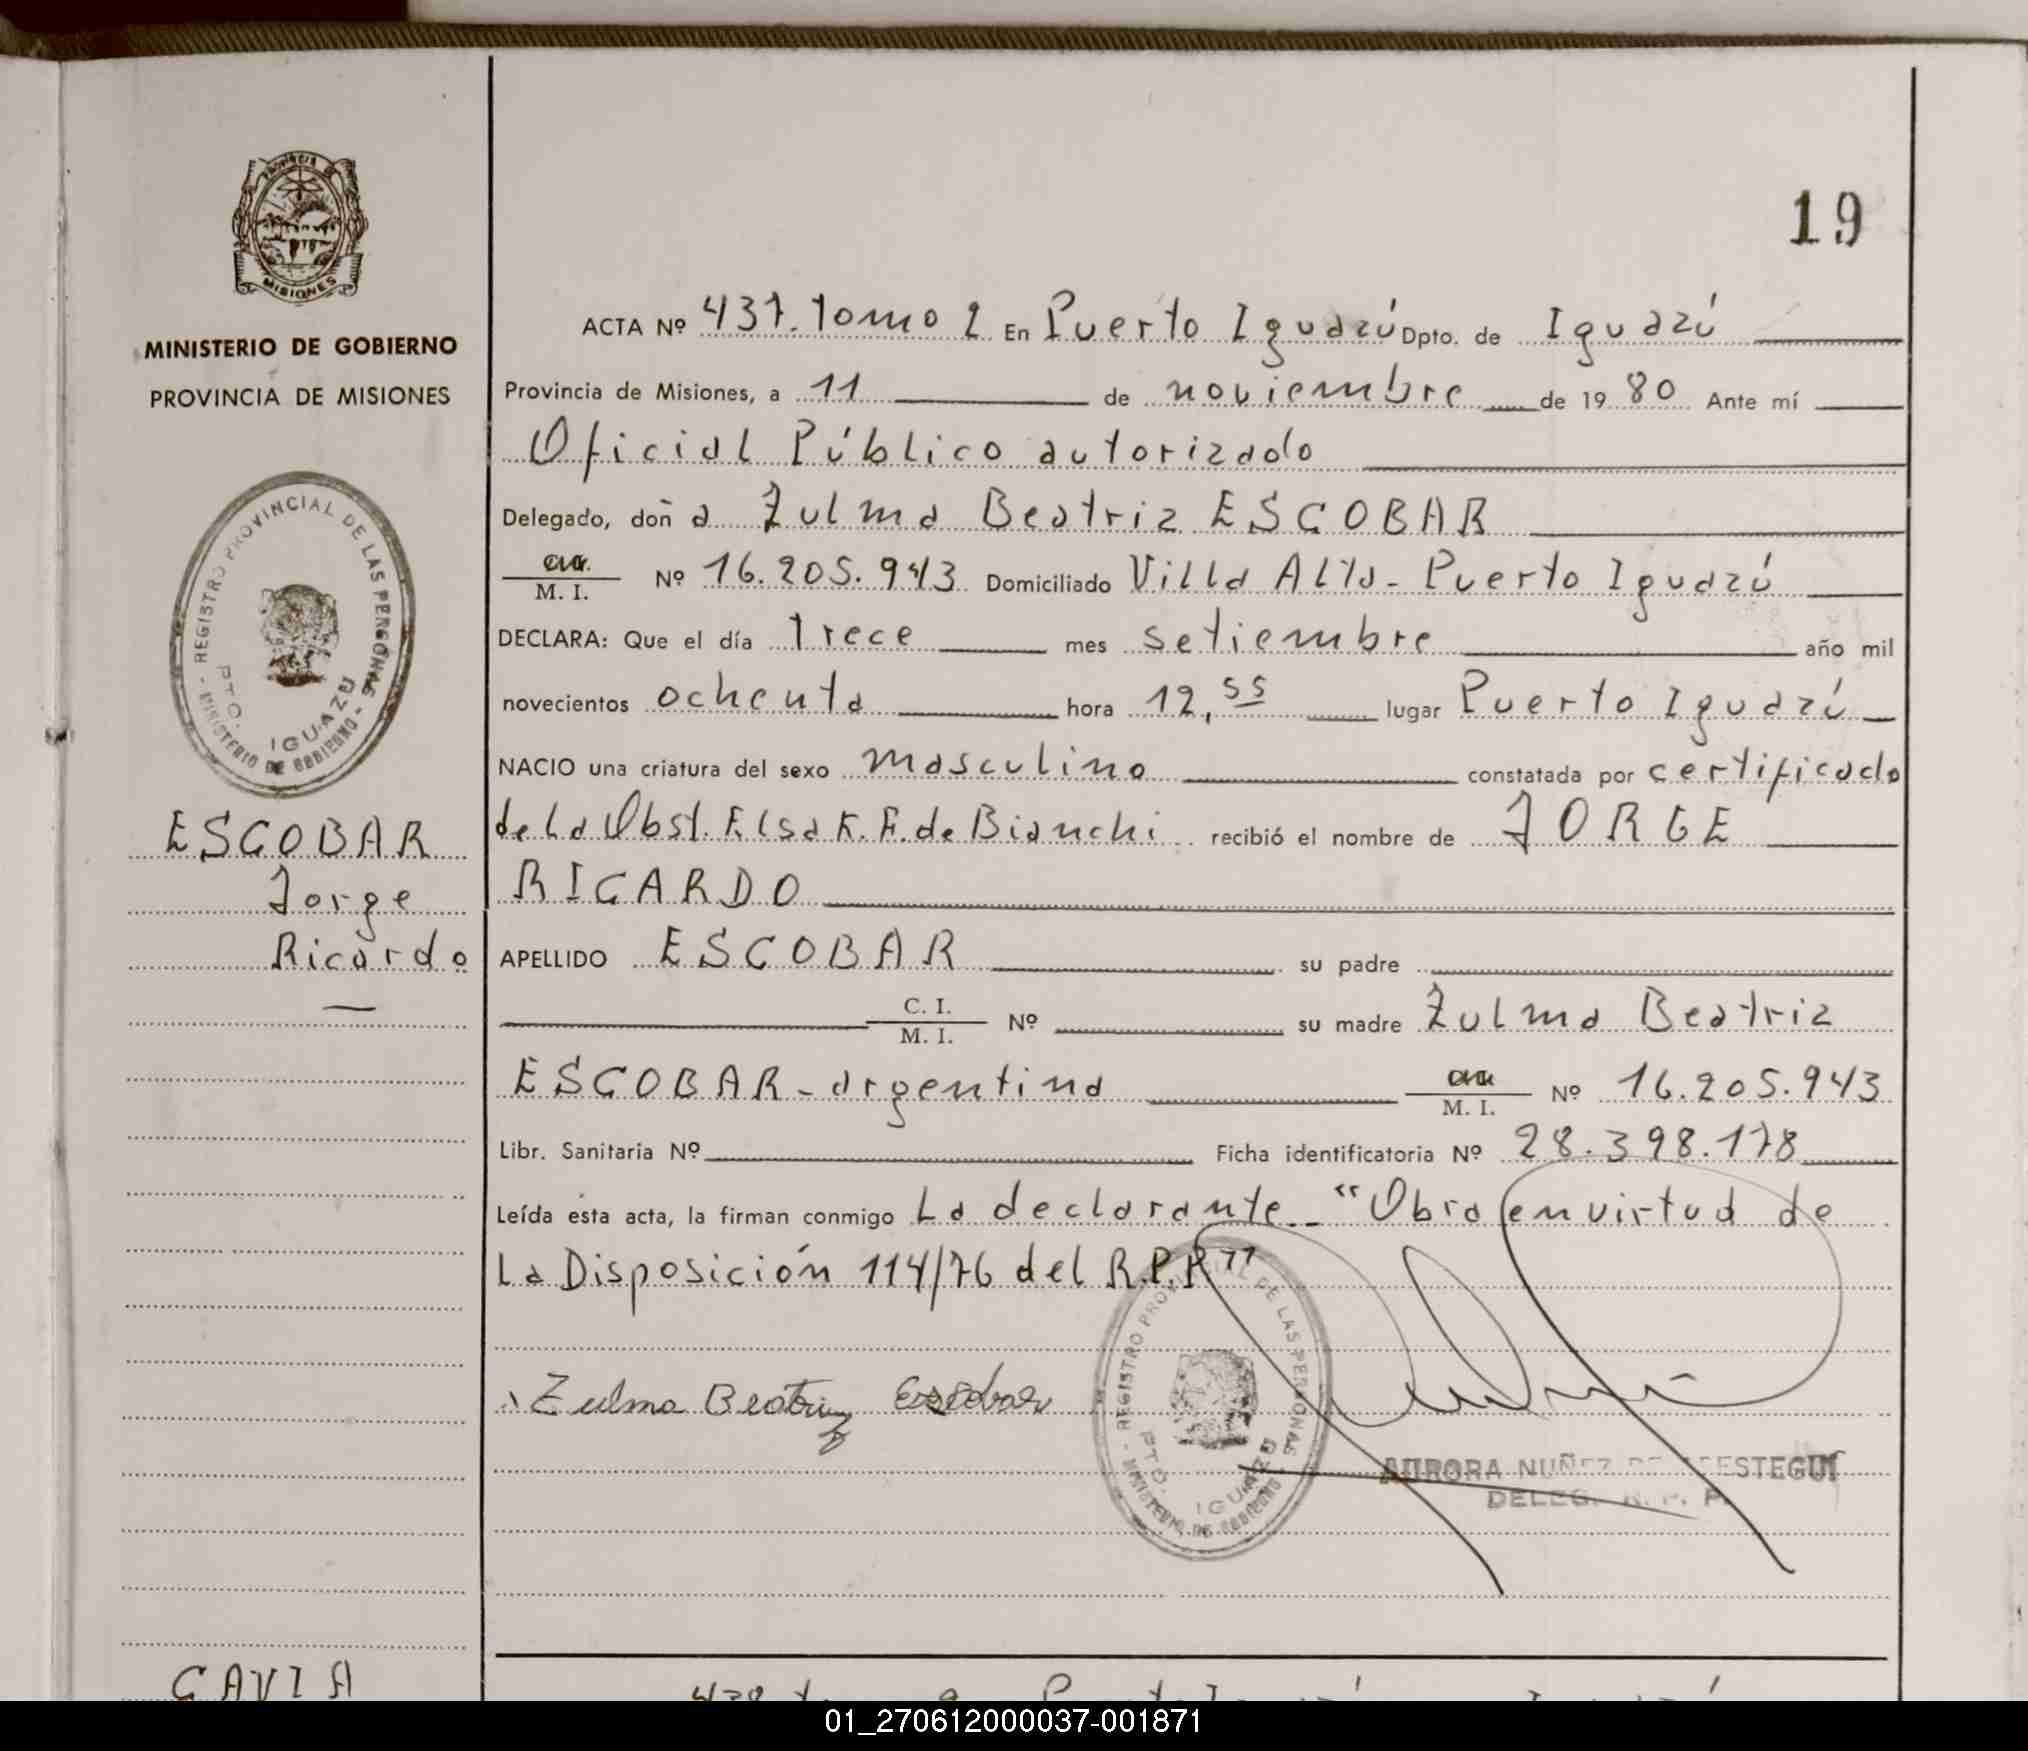 19
Provincia de
MISIONES
MINISTERIO DE GOBIERNO
PROVINCIA DE MISIONES
- REGISTRO PROVINCIAL DE LAS PERSONAS -
PTO. IGUAZU
MINISTERIO DE GOBIERNO
ESCOBAR
Jorge
Ricardo
ACTA Nº 437. tomo 2 En Puerto Iguazú Dpto. de Iguazú
Provincia de Misiones, a 11 de noviembre de 1980 Ante mí
Oficial Público autorizado
Delegado, doña Zulma Beatriz ESCOBAR
M. I. Nº 16.205.943 Domiciliado Villa Alta - Puerto Iguazú
DECLARA: Que el día trece mes setiembre año mil
novecientos ochenta hora 12,55 lugar Puerto Iguazú
NACIO una criatura del sexo masculino constatada por certificado
de la Obst. Elsa K. F. de Bianchi recibió el nombre de JORGE
RICARDO
APELLIDO ESCOBAR su padre
C. I.
M. I. Nº su madre Zulma Beatriz
ESCOBAR - argentina M. I. Nº 16.205.943
Libr. Sanitaria Nº Ficha identificatoria Nº 28.398.178
Leída ésta acta, la firman conmigo La declarante - "Obra en virtud de
La Disposición 114/76 del R.P.P"
Zulma Beatriz Escobar
- REGISTRO PROVINCIAL DE LAS PERSONAS -
PTO. IGUAZU
MINISTERIO DE GOBIERNO
AURORA NUÑEZ DE
DELEG. R. P. P.
GAVIA
01_270612000037-001871